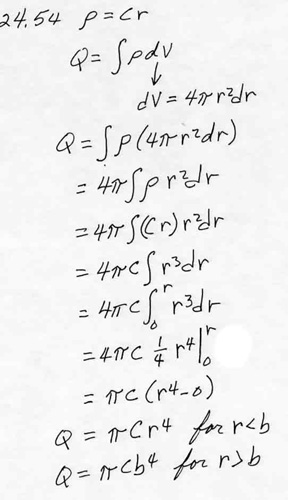 24.54 ρ = Cr
Q = ∫ρdV
↓
dV = 4πr²dr
Q = ∫ρ(4πr²dr)
= 4π∫ρ r²dr
= 4π∫(Cr)r²dr
= 4πC∫r³dr
= 4πC∫₀ʳ r³dr
= 4πC ¼ r⁴|₀ʳ
= πC(r⁴-0)
Q = πCr⁴ for r<b
Q = πCb⁴ for r>b